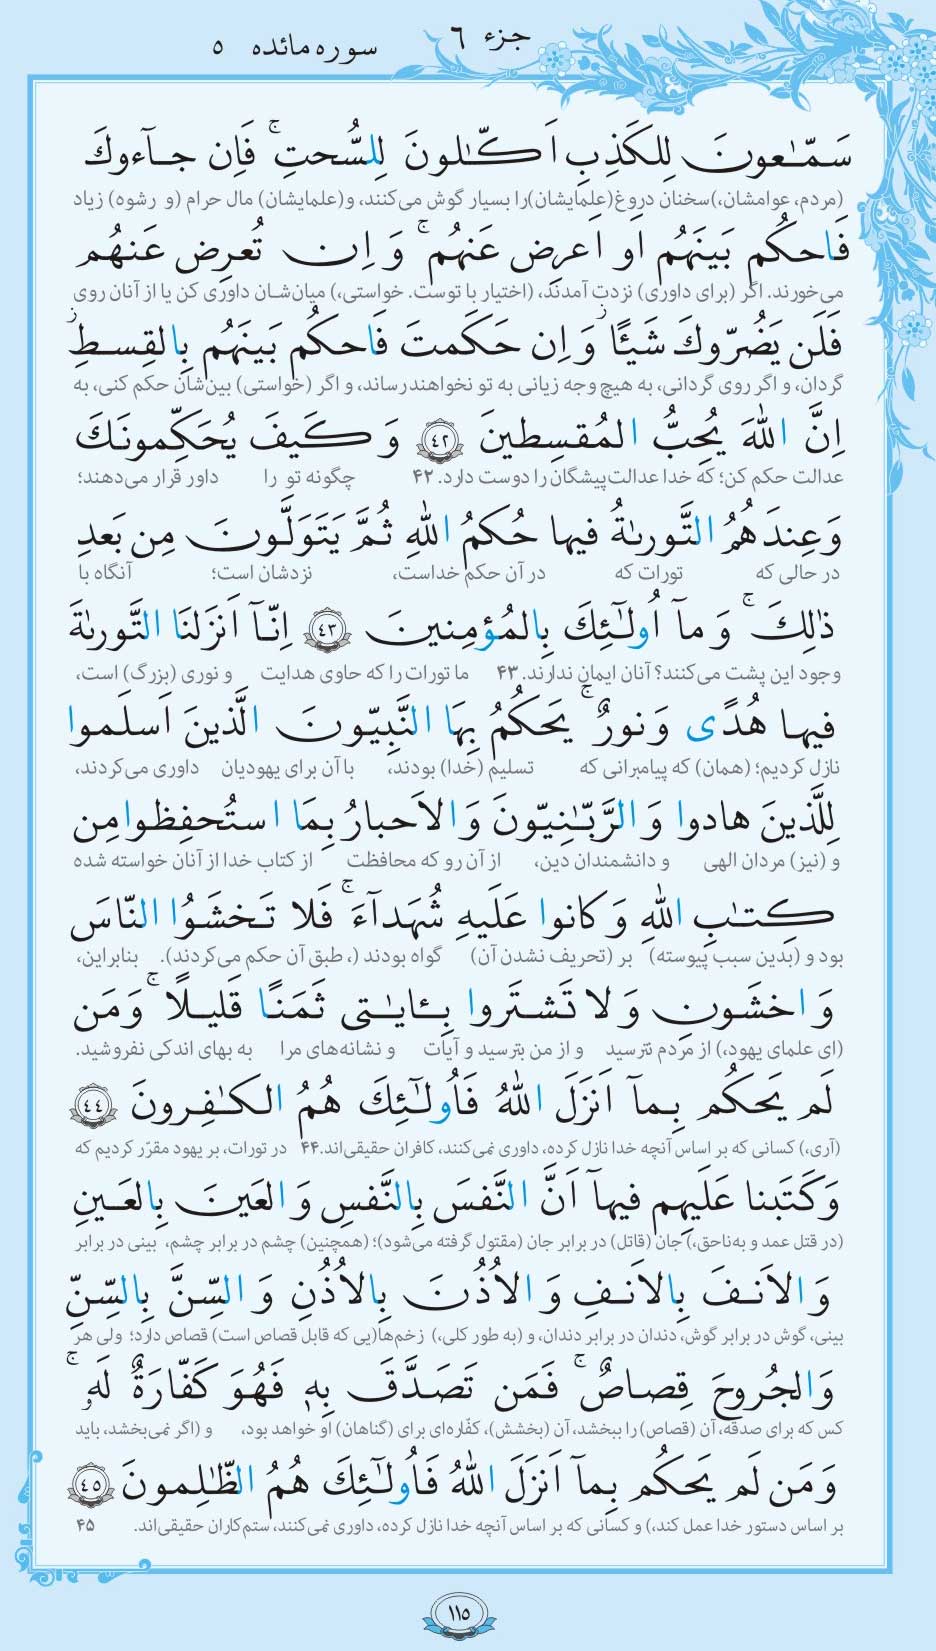 جزء ۶
سوره مائده ۵
سَمّٰعونَ لِلكَذِبِ اَكّٰلونَ لِلسُّحتِ ۚ فَاِن جآءوكَ
(مردم، عوامشان،)سخنان دروغ(علمایشان)را بسیار گوش می‌کنند، و(علمایشان) مال حرام (و رشوه) زیاد
فَاحكُم بَينَهُم اَو اَعرِض عَنهُم ۚ وَ اِن تُعرِض عَنهُم
می‌خورند. اگر (برای داوری) نزدت آمدند، (اختیار با توست. خواستی،) میان‌شان داوری کن یا از آنان روی
فَلَن يَضُرّوكَ شَيئًا ۖ وَ اِن حَكَمتَ فَاحكُم بَينَهُم بِالقِسطِ ۚ
گردان، و اگر روی گردانی، به هیچ وجه زیانی به تو نخواهند رساند، و اگر (خواستی) بین‌شان حکم کنی، به
اِنَّ اللّٰهَ يُحِبُّ المُقسِطينَ ﴿۴۲﴾ وَ كَيفَ يُحَكِّمونَكَ
عدالت حکم کن؛ که خدا عدالت‌پیشگان را دوست دارد. ۴۲ چگونه تو را داور قرار می‌دهند؛
وَ عِندَهُمُ التَّورىٰةُ فيها حُكمُ اللّٰهِ ثُمَّ يَتَوَلَّونَ مِن بَعدِ
در حالی که تورات که در آن حکم خداست، نزدشان است؛ آنگاه با
ذٰلِكَ ۚ وَ مآ اُولٰٓئِكَ بِالمُؤمِنينَ ﴿۴۳﴾ اِنّآ اَنزَلنَا التَّورىٰةَ
وجود این پشت می‌کنند؟ آنان ایمان ندارند. ۴۳ ما تورات را که حاوی هدایت و نوری (بزرگ) است،
فيها هُدًى وَ نورٌ ۚ يَحكُمُ بِهَا النَّبِيّونَ الَّذينَ اَسلَموا
نازل کردیم؛ (همان) که پیامبرانی که تسلیم (خدا) بودند، با آن برای یهودیان داوری می‌کردند،
لِلَّذينَ هادوا وَ الرَّبّٰنِيّونَ وَ الاَحبارُ بِمَا استُحفِظوا مِن
و (نیز) مردان الهی و دانشمندان دین، از آن رو که محافظت از کتاب خدا از آنان خواسته شده
كِتٰبِ اللّٰهِ وَ كانوا عَلَيهِ شُهَدآءَ ۚ فَلا تَخشَوُا النّاسَ
بود و (بدین سبب پیوسته) بر (تحریف نشدن آن) گواه بودند (، طبق آن حکم می‌کردند). بنابراین،
وَ اخشَونِ وَ لا تَشتَروا بِـٔايٰتى ثَمَنًا قَليلًا ۚ وَ مَن
(ای علمای یهود،) از مردم نترسید و از من بترسید و آیات و نشانه‌های مرا به بهای اندکی نفروشید.
لَم يَحكُم بِمآ اَنزَلَ اللّٰهُ فَاُولٰٓئِكَ هُمُ الكٰفِرونَ ﴿۴۴﴾
(آری،) کسانی که بر اساس آنچه خدا نازل کرده، داوری نمی‌کنند، کافران حقیقی‌اند. ۴۴ در تورات، بر یهود مقرّر کردیم که
وَ كَتَبنا عَلَيهِم فيهآ اَنَّ النَّفسَ بِالنَّفسِ وَ العَينَ بِالعَينِ
(در قتل عمد و به‌ناحق،) جان (قاتل) در برابر جان (مقتول گرفته می‌شود)؛ (همچنین) چشم در برابر چشم، بینی در برابر
وَ الاَنفَ بِالاَنفِ وَ الاُذُنَ بِالاُذُنِ وَ السِّنَّ بِالسِّنِّ
بینی، گوش در برابر گوش، دندان در برابر دندان، و (به طور کلی،) زخم‌ها(یی که قابل قصاص است) قصاص دارد؛ ولی هر
وَ الجُروحَ قِصاصٌ ۚ فَمَن تَصَدَّقَ بِهٖ فَهُوَ كَفّارَةٌ لَهٗ ۚ
کس که برای صدقه، آن (قصاص) را ببخشد، آن (بخشش)، کفّاره‌ای برای (گناهان) او خواهد بود، و (اگر نمی‌بخشد، باید
وَ مَن لَم يَحكُم بِمآ اَنزَلَ اللّٰهُ فَاُولٰٓئِكَ هُمُ الظّٰلِمونَ ﴿۴۵﴾
بر اساس دستور خدا عمل کند،) و کسانی که بر اساس آنچه خدا نازل کرده، داوری نمی‌کنند، ستم‌کاران حقیقی‌اند. ۴۵
۱۱۵